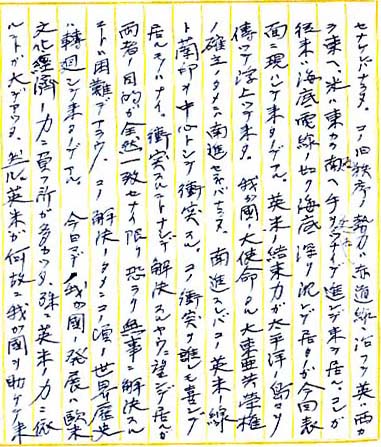 セナケレバナラヌ。コノ旧秩序ノ勢力ハ赤道線ニ沿フテ英ハ西
ヲ東ヘ、米ハ東カラ南ヘチカヅイテ進ンデ来テ居ル。コレガ
従来ハ海底電線ノ如ク海底深ク沈ンデ居タガ今回表
面ニ現ハレテ来タノデアル。英米ノ結束力ガ太平洋ノ島々ヲ
傳ッテ浮上ッテ来タ。我ガ國ノ大使命タル大東亜共栄権
ノ確立ノタメニハ南進セネバナラヌ。南進スレバコノ英米ノ線
ト蘭印ヲ中心トシテ衝突スル。コノ衝突ヲ誰レモ喜ンデ
居ルモノハナイ。衝突スルコトナシニ解決スルヤウニ望ンデ居ルガ
両者ノ目的ガ全然一致セナイ限リ恐ラク無事ニ解決スル
コトハ困難デアラウ。コノ解決ノタメニコノ項ノ世界歴史
ハ轉廻シテ来タノデアル。今日マデノ我ガ國ノ発展ハ歐米
文化経済ノ力ニ負フ所ガ多カッタ。殊ニ英米ノ力ニ依
ルコトガ大デアッタ。然ルニ英米ガ何故ニ我ガ國ヲ助ケテ来